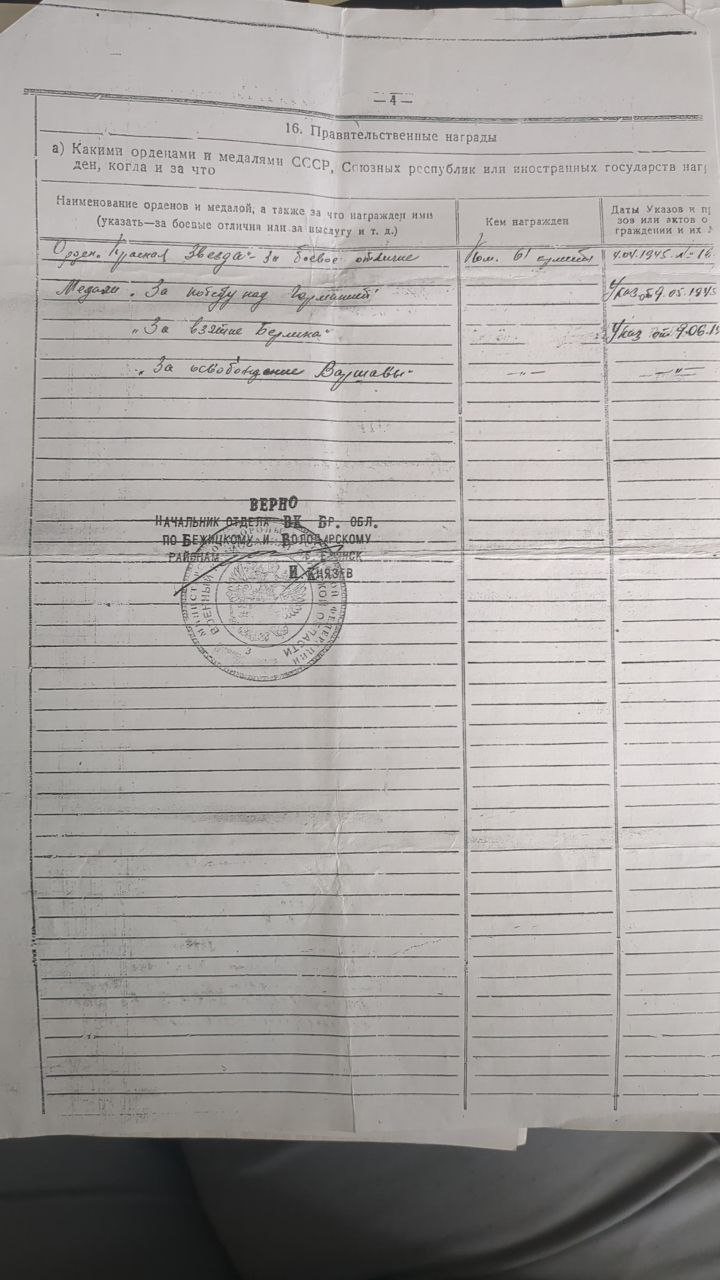 — 4 —
16. Правительственные награды
а) Какими орденами и медалями СССР, Союзных республик или иностранных государств наг
ден, когда и за что
Наименование орденов и медалей, а также за что награжден ими
(указать—за боевые отличия или за выслугу и т. д.)
Кем награжден
Даты Указов и п
зов или актов о
граждении и их
Орден „Красная Звезда" За боевое отличие
Ком. 61 армией
9.04.1945 № 16
Медали „За победу над Германией"
Указ от 9.05.1945
„За взятие Берлина"
Указ от 9.06.19
„За освобождение Варшавы"
—„—
—„—
ВЕРНО
НАЧАЛЬНИК ОТДЕЛА ВК БР. ОБЛ.
ПО БЕЖИЦКОМУ И ВОЛОДАРСКОМУ
РАЙОНАМ
И. КНЯЗЕВ
ВОЕННЫЙ
ОБЛАСТИ